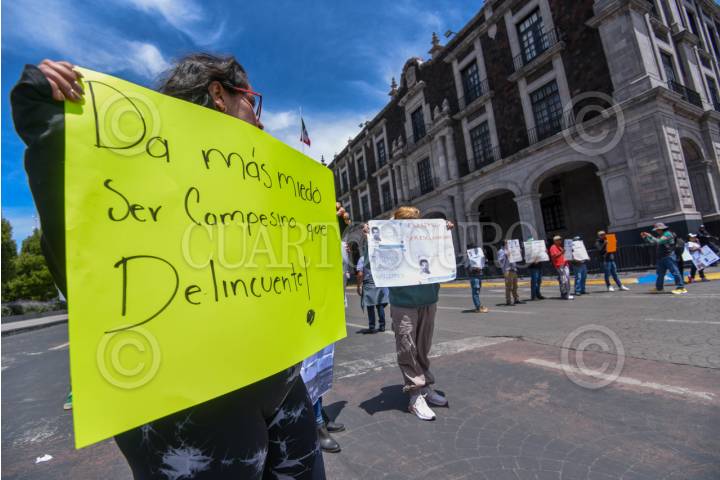 Da más miedo
Ser Campesino que
Delincuente!
CUARTOSCURO
©
©
©
©